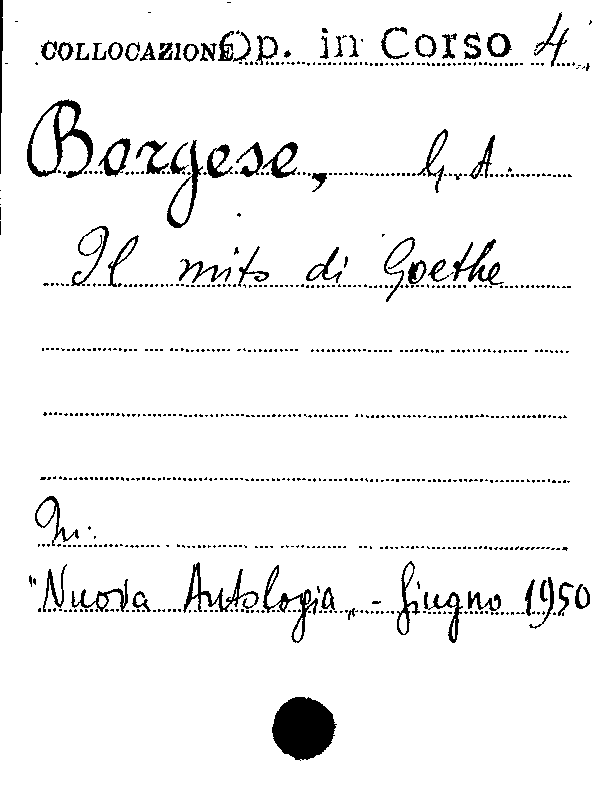 COLLOCAZIONE Op. in Corso 4
Borgese, G. A.
Il mito di Goethe
In:
"Nuova Antologia„ - Giugno 1950